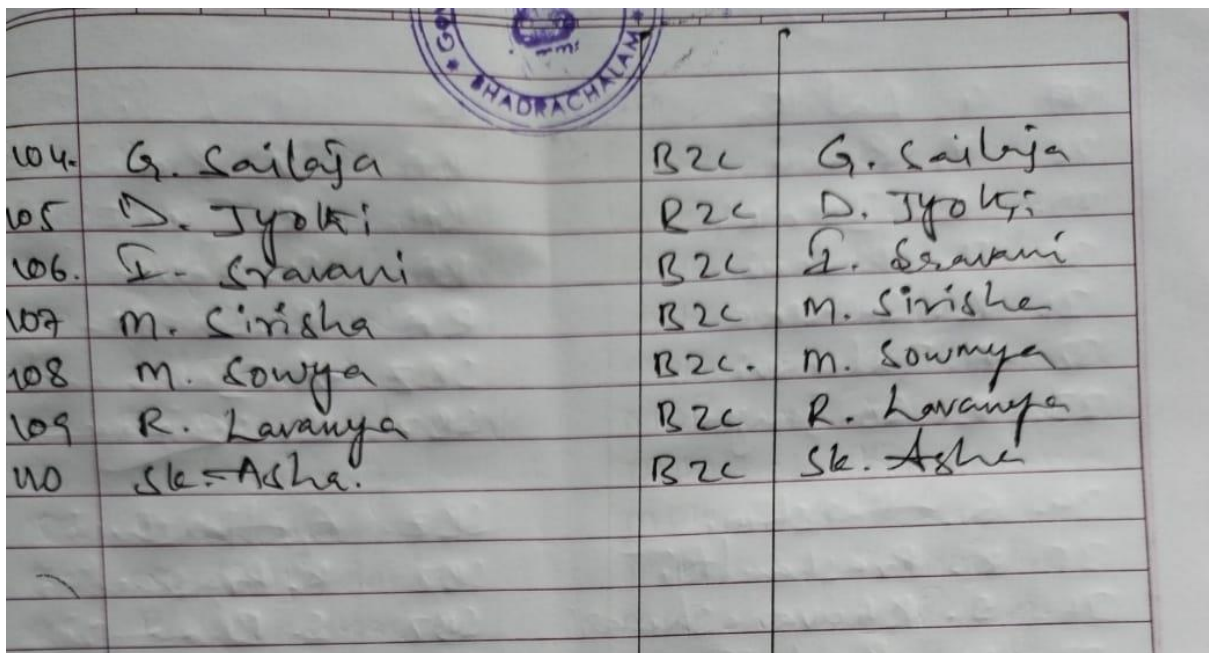 BHADRACHALAM
104. G. Sailaja B2C G. Sailaja
105 D. Jyothi B2C D. Jyothi
106. I. Sravani B2C I. Sravani
107 M. Sirisha B2C M. Sirisha
108 M. Sowya B2C. M. Sowmya
109 R. Lavanya B2C R. Lavanya
110 Sk. Asha. B2C Sk. Asha